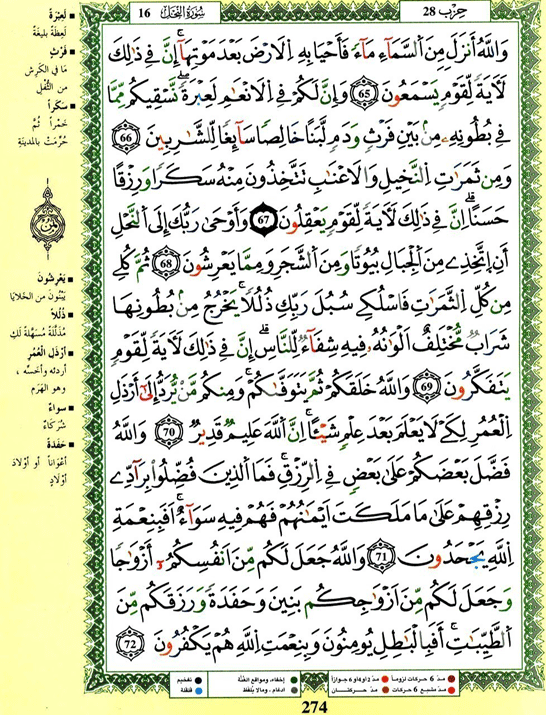 حِزْب 28
سُورَةُ النَّحْل
16
وَاللَّهُ أَنزَلَ مِنَ السَّمَآءِ مَآءً فَأَحْيَا بِهِ اِلَارْضَ بَعْدَ مَوْتِهَآ إِنَّ فِي ذَٰلِكَ
لَآيَةً لِّقَوْمٍ يَسْمَعُونَ 65 وَإِنَّ لَكُمْ فِي اِلَانْعَٰمِ لَعِبْرَةً نَّسْقِيكُم مِّمَّا
فِي بُطُونِهِۦ مِنۢ بَيْنِ فَرْثٍ وَدَمٍ لَّبَنًا خَالِصًا سَآئِغًا لِّلشَّٰرِبِينَ 66
وَمِن ثَمَرَٰتِ اِلنَّخِيلِ وَالَاعْنَٰبِ تَتَّخِذُونَ مِنْهُ سَكَرًا وَرِزْقًا
حَسَنًا إِنَّ فِي ذَٰلِكَ لَآيَةً لِّقَوْمٍ يَعْقِلُونَ 67 وَأَوْحَىٰ رَبُّكَ إِلَى اَلنَّحْلِ
أَنِ اِتَّخِذِي مِنَ اَلْجِبَالِ بُيُوتًا وَمِنَ اَلشَّجَرِ وَمِمَّا يَعْرِشُونَ 68 ثُمَّ كُلِي
مِن كُلِّ اِلثَّمَرَٰتِ فَاسْلُكِي سُبُلَ رَبِّكِ ذُلُلًا يَخْرُجُ مِنۢ بُطُونِهَا
شَرَابٌ مُّخْتَلِفٌ اَلْوَٰنُهُۥ فِيهِ شِفَآءٌ لِّلنَّاسِ إِنَّ فِي ذَٰلِكَ لَآيَةً لِّقَوْمٍ
يَتَفَكَّرُونَ 69 وَاللَّهُ خَلَقَكُمْ ثُمَّ يَتَوَفَّىٰكُمْ وَمِنكُم مَّنْ يُّرَدُّ إِلَىٰٓ أَرْذَلِ
اِلْعُمُرِ لِكَيْ لَا يَعْلَمَ بَعْدَ عِلْمٍ شَيْـًٔا إِنَّ اَللَّهَ عَلِيمٌ قَدِيرٌ 70 وَاللَّهُ
فَضَّلَ بَعْضَكُمْ عَلَىٰ بَعْضٍ فِي اِلرِّزْقِ فَمَا اَلَّذِينَ فُضِّلُوا بِرَآدِّي
رِزْقِهِمْ عَلَىٰ مَا مَلَكَتَ اَيْمَٰنُهُمْ فَهُمْ فِيهِ سَوَآءٌ اَفَبِنِعْمَةِ
اِللَّهِ يَجْحَدُونَ 71 وَاللَّهُ جَعَلَ لَكُم مِّنَ اَنفُسِكُمُۥٓ أَزْوَٰجًا
وَجَعَلَ لَكُم مِّنَ اَزْوَٰجِكُم بَنِينَ وَحَفَدَةً وَرَزَقَكُم مِّنَ
اَلطَّيِّبَٰتِ أَفَبِالْبَٰطِلِ يُومِنُونَ وَبِنِعْمَتِ اِللَّهِ هُمْ يَكْفُرُونَ 72
■ لَعِبْرَةً
لَعِظَةً بَلِيغَةً
■ فَرْثٍ
مَا فِي الكَرِشِ
مِن الثُّفْلِ
■ سَكَرًا
خَمْراً ثُمَّ
حُرِّمَتْ بالمدينةِ
■ يَعْرِشُونَ
يَبْنُونَ من الخَلايَا
■ ذُلُلًا
مُذَلَّلَةً مُسَهَّلَةً لَكِ
■ أَرْذَلِ الْعُمُرِ
أرْدَئِه وأَخَسِّه ،
وهو الهَرَم
■ سَواءٌ
شُرَكَاءُ
■ حَفَدَةً
أعْوَاناً أو أوْلَادَ
أوْلَادٍ
مدّ 6 حركات لزوماً
مدّ 2 أو 4 أو 6 جوازاً
إخفاء، ومواقع الغُنَّة
تفخيم
مدّ مشبع 6 حركات
مدّ حركتـــان
ادغام ، ومالا يلفظ
قلقلة
274